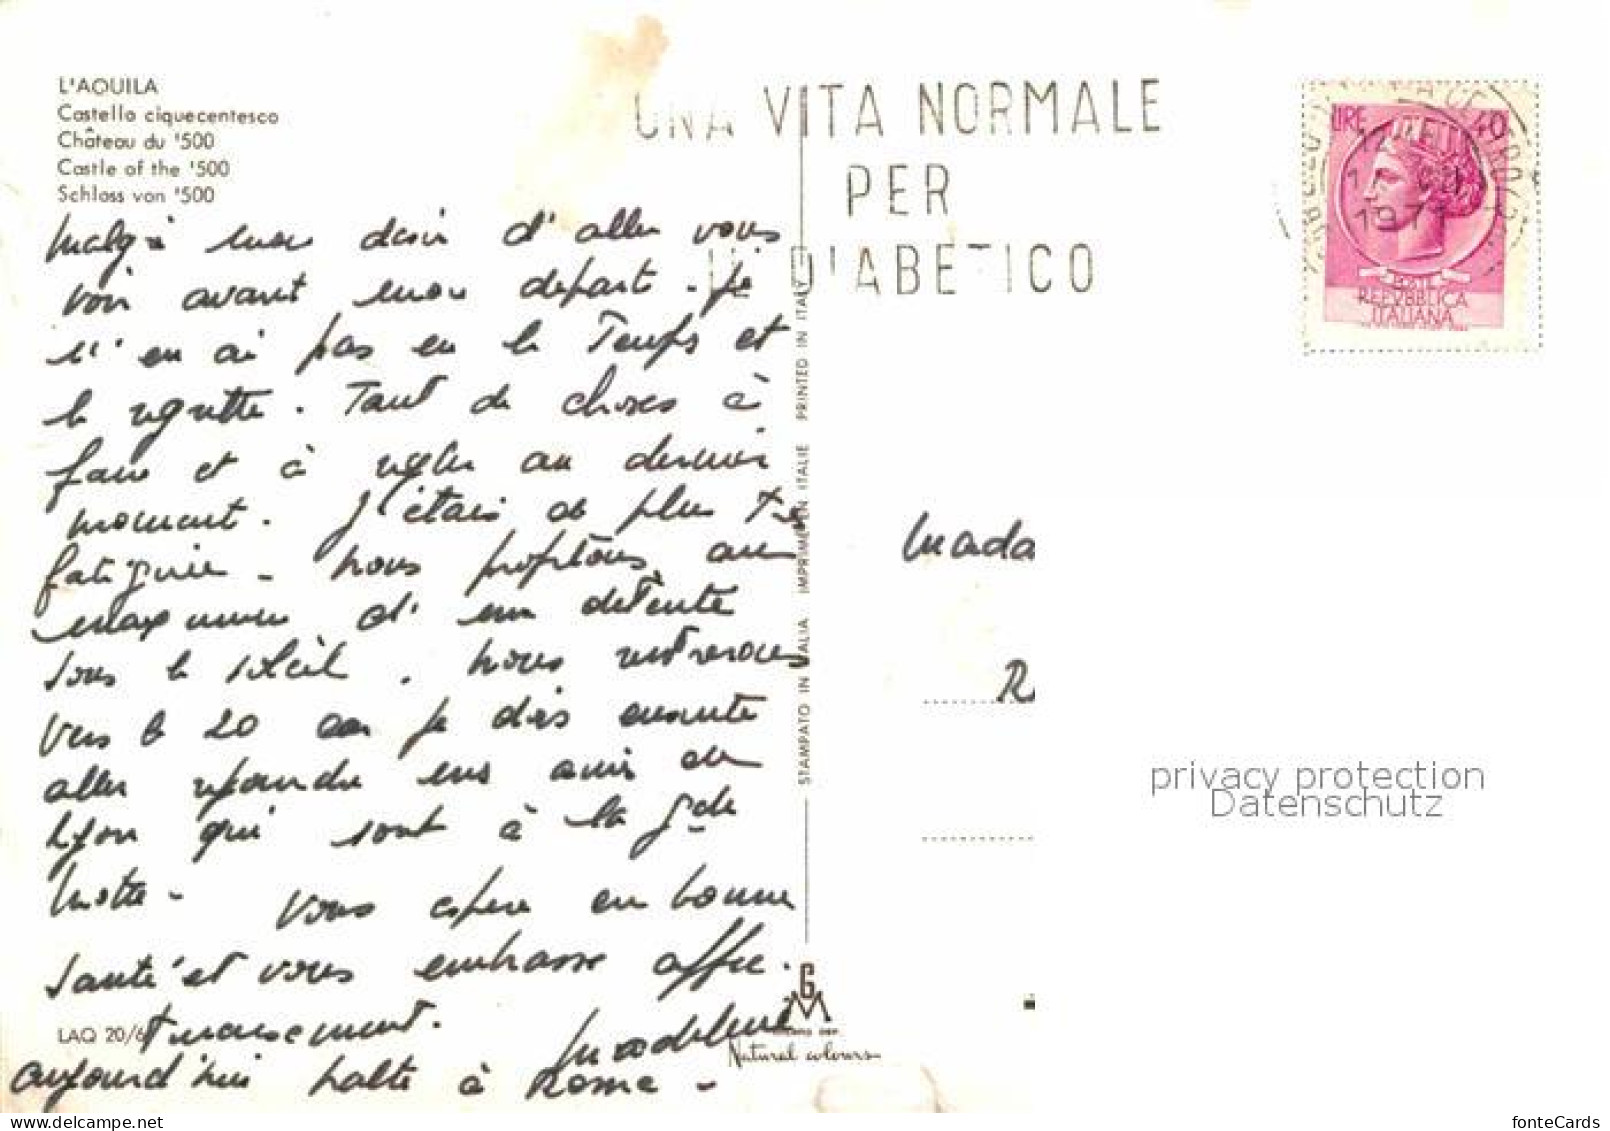 L'AQUILA
Castello ciquecentesco
Château du '500
Castle of the '500
Schloss von '500
Malgré mon désir d'aller vous
voir avant mon départ. Je
n'en ai pas eu le Temps et
le regrette. Tant de choses à
faire et à régler au dernier
moment. J'étais de plus Très
fatiguée - Nous profitons au
maximum d'une détente
sous le soleil. Nous rentrerons
vers le 20 car je dois ensuite
aller rejoindre mes amis de
Lyon qui sont à la Gde
Motte - Vous espère en bonne
santé et vous embrasse affec-
tueusement. Madeleine
aujourd'hui halte à Rome -
LAQ 20/6
STAMPATO IN ITALIA IMPRIMÉ EN ITALIE PRINTED IN ITALY
Natural colours
UNA VITA NORMALE
PER
IL DIABETICO
LIRE 40
1971
REPVBBLICA
ITALIANA
Mada
R
privacy protection
Datenschutz
fonteCards